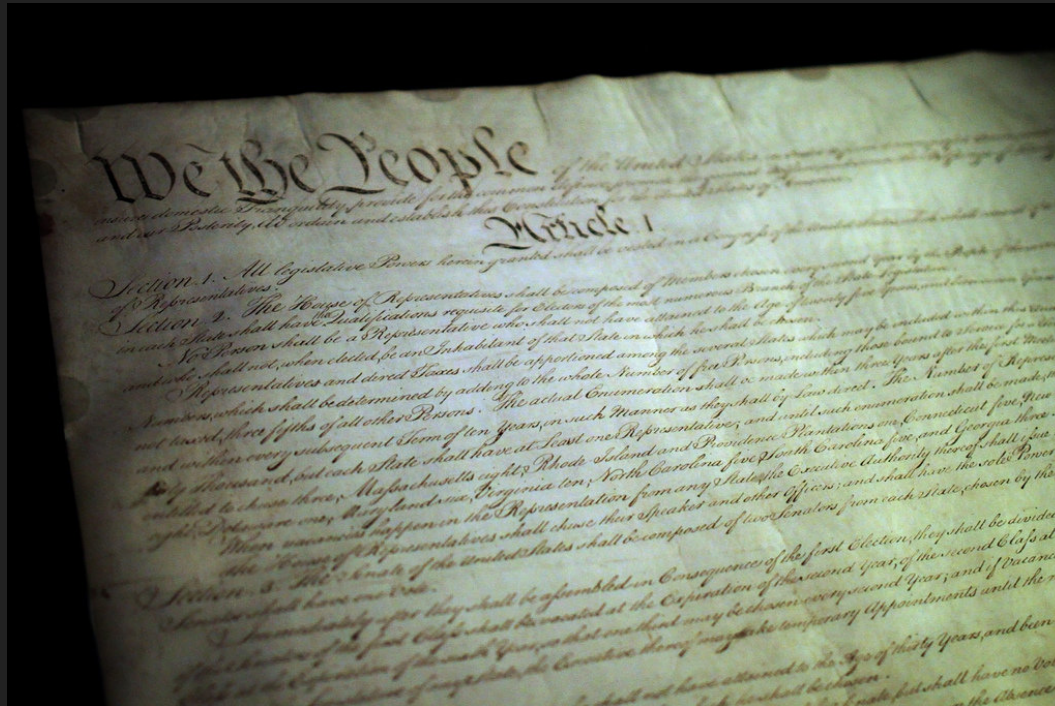 We the People of the United States
insure domestic Tranquility, provide for the common defence,
and our Posterity, do ordain and establish this Constitution for the United States of America.
Article I
Section. 1. All legislative Powers herein granted shall be vested in a Congress of the United States, which shall consist of
of Representatives.
Section. 2. The House of Representatives shall be composed of Members chosen every second Year by the People of the
in each State shall have the Qualifications requisite for Electors of the most numerous Branch of the State Legislature.
No Person shall be a Representative who shall not have attained to the Age of twenty five Years, and been
and who shall not, when elected, be an Inhabitant of that State in which he shall be chosen.
Representatives and direct Taxes shall be apportioned among the several States which may be included within this
Numbers, which shall be determined by adding to the whole Number of free Persons, including those bound to Service for a
not taxed, three fifths of all other Persons. The actual Enumeration shall be made within three Years after the first Meeting
and within every subsequent Term of ten Years, in such Manner as they shall by Law direct. The Number of
thirty Thousand, but each State shall have at Least one Representative; and until such enumeration shall be made,
entitled to chuse three, Massachusetts eight, Rhode Island and Providence Plantations one, Connecticut five, New
eight, Delaware one, Maryland six, Virginia ten, North Carolina five, South Carolina five, and Georgia three.
When vacancies happen in the Representation from any State, the Executive Authority thereof shall issue
The House of Representatives shall chuse their Speaker and other Officers; and shall have the sole Power
Section. 3. The Senate of the United States shall be composed of two Senators from each State, chosen by the
Senator shall have one Vote.
Immediately after they shall be assembled in Consequence of the first Election, they shall be divided
of the Senators of the first Class shall be vacated at the Expiration of the second Year, of the second Class at
Class at the Expiration of the sixth Year, so that one third may be chosen every second Year; and if Vacancies
of any State, the Executive thereof may make temporary Appointments until the
shall not have attained to the Age of thirty Years, and been
he shall be chosen.
Senate, but shall have no Vote
in the Absence